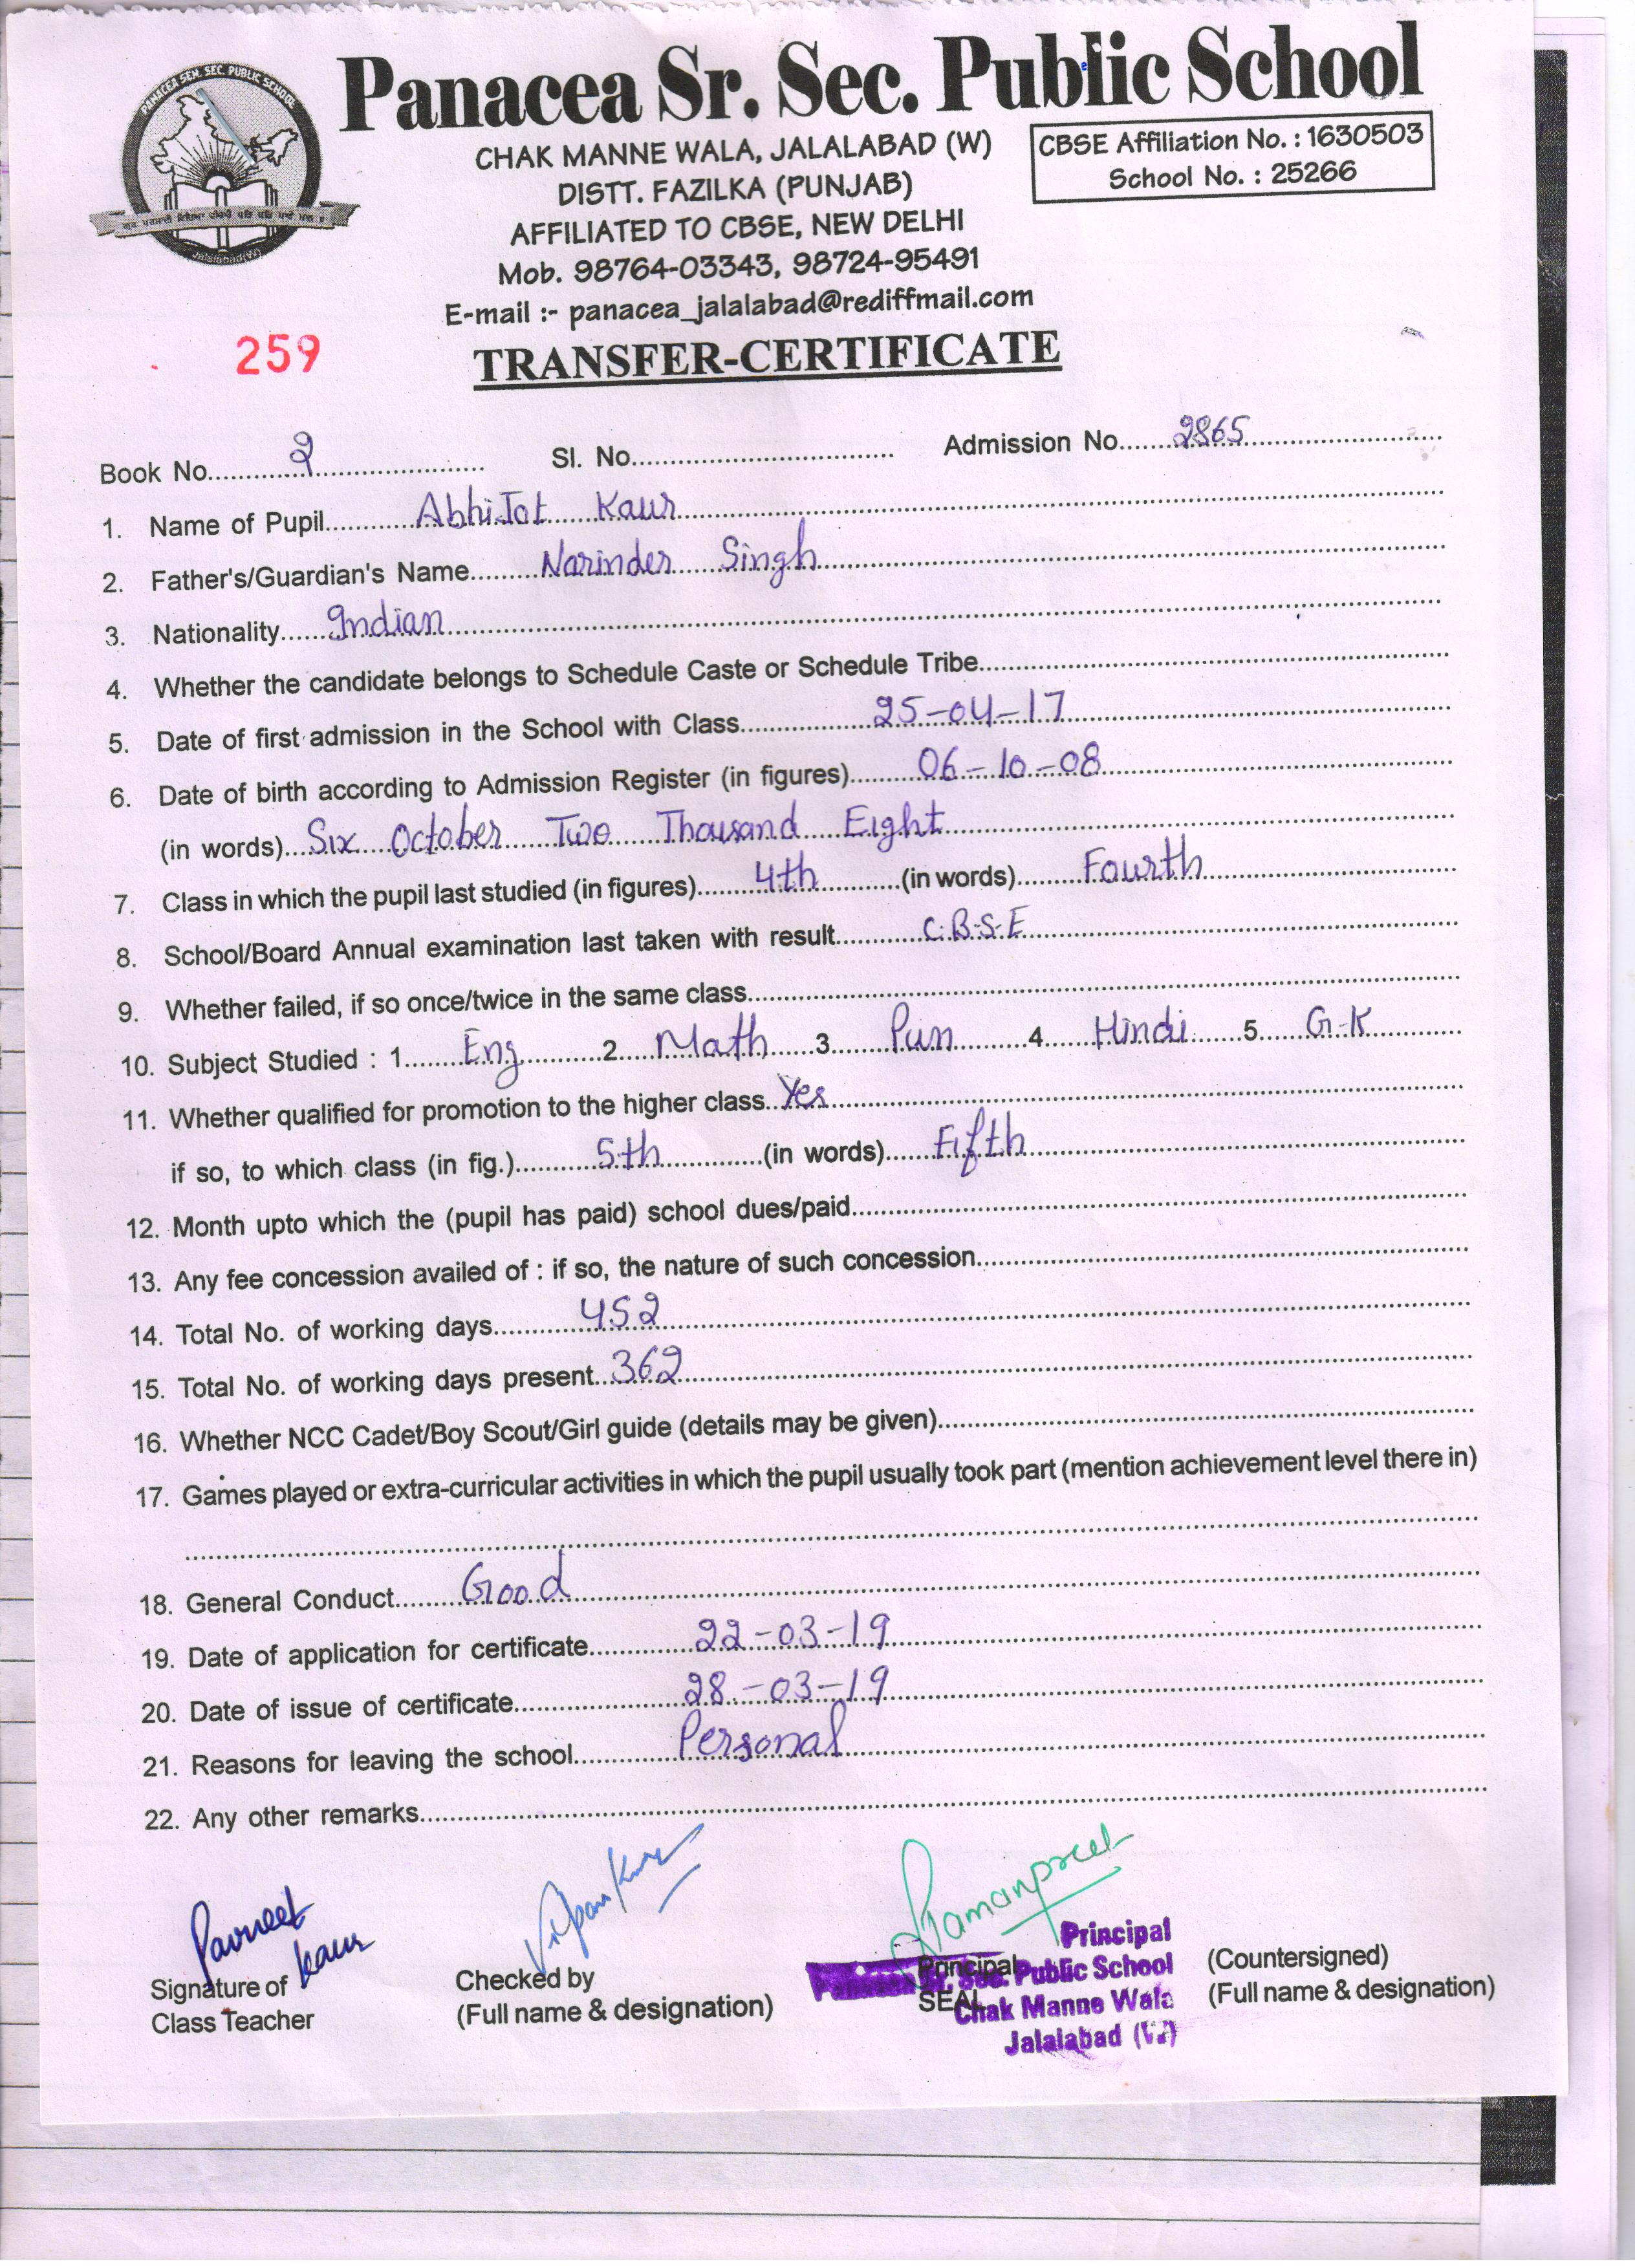 PANACEA SEN. SEC. PUBLIC SCHOOL
Jalalabad(W)
Panacea Sr. Sec. Public School
CHAK MANNE WALA, JALALABAD (W)
DISTT. FAZILKA (PUNJAB)
AFFILIATED TO CBSE, NEW DELHI
Mob. 98764-03343, 98724-95491
E-mail :- panacea_jalalabad@rediffmail.com
CBSE Affiliation No. : 1630503
School No. : 25266
259
TRANSFER-CERTIFICATE
Book No. 2 Sl. No. Admission No. 2865
1. Name of Pupil AbhiJot Kaur
2. Father's/Guardian's Name Narinder Singh
3. Nationality Indian
4. Whether the candidate belongs to Schedule Caste or Schedule Tribe
5. Date of first admission in the School with Class 25-04-17
6. Date of birth according to Admission Register (in figures) 06-10-08
(in words) Six October Two Thousand Eight
7. Class in which the pupil last studied (in figures) 4th (in words) Fourth
8. School/Board Annual examination last taken with result C.B.S.E
9. Whether failed, if so once/twice in the same class
10. Subject Studied : 1 Eng 2 Math 3 Pun 4 Hindi 5 G.K
11. Whether qualified for promotion to the higher class Yes
if so, to which class (in fig.) 5th (in words) Fifth
12. Month upto which the (pupil has paid) school dues/paid
13. Any fee concession availed of : if so, the nature of such concession
14. Total No. of working days 452
15. Total No. of working days present 362
16. Whether NCC Cadet/Boy Scout/Girl guide (details may be given)
17. Games played or extra-curricular activities in which the pupil usually took part (mention achievement level there in)
18. General Conduct Good
19. Date of application for certificate 22-03-19
20. Date of issue of certificate 28-03-19
21. Reasons for leaving the school Personal
22. Any other remarks
Pavneet Kaur
Signature of
Class Teacher
Checked by
(Full name & designation)
Principal
SEAL
Principal
Sec. Public School
Chak Manne Wala
Jalalabad (W)
(Countersigned)
(Full name & designation)